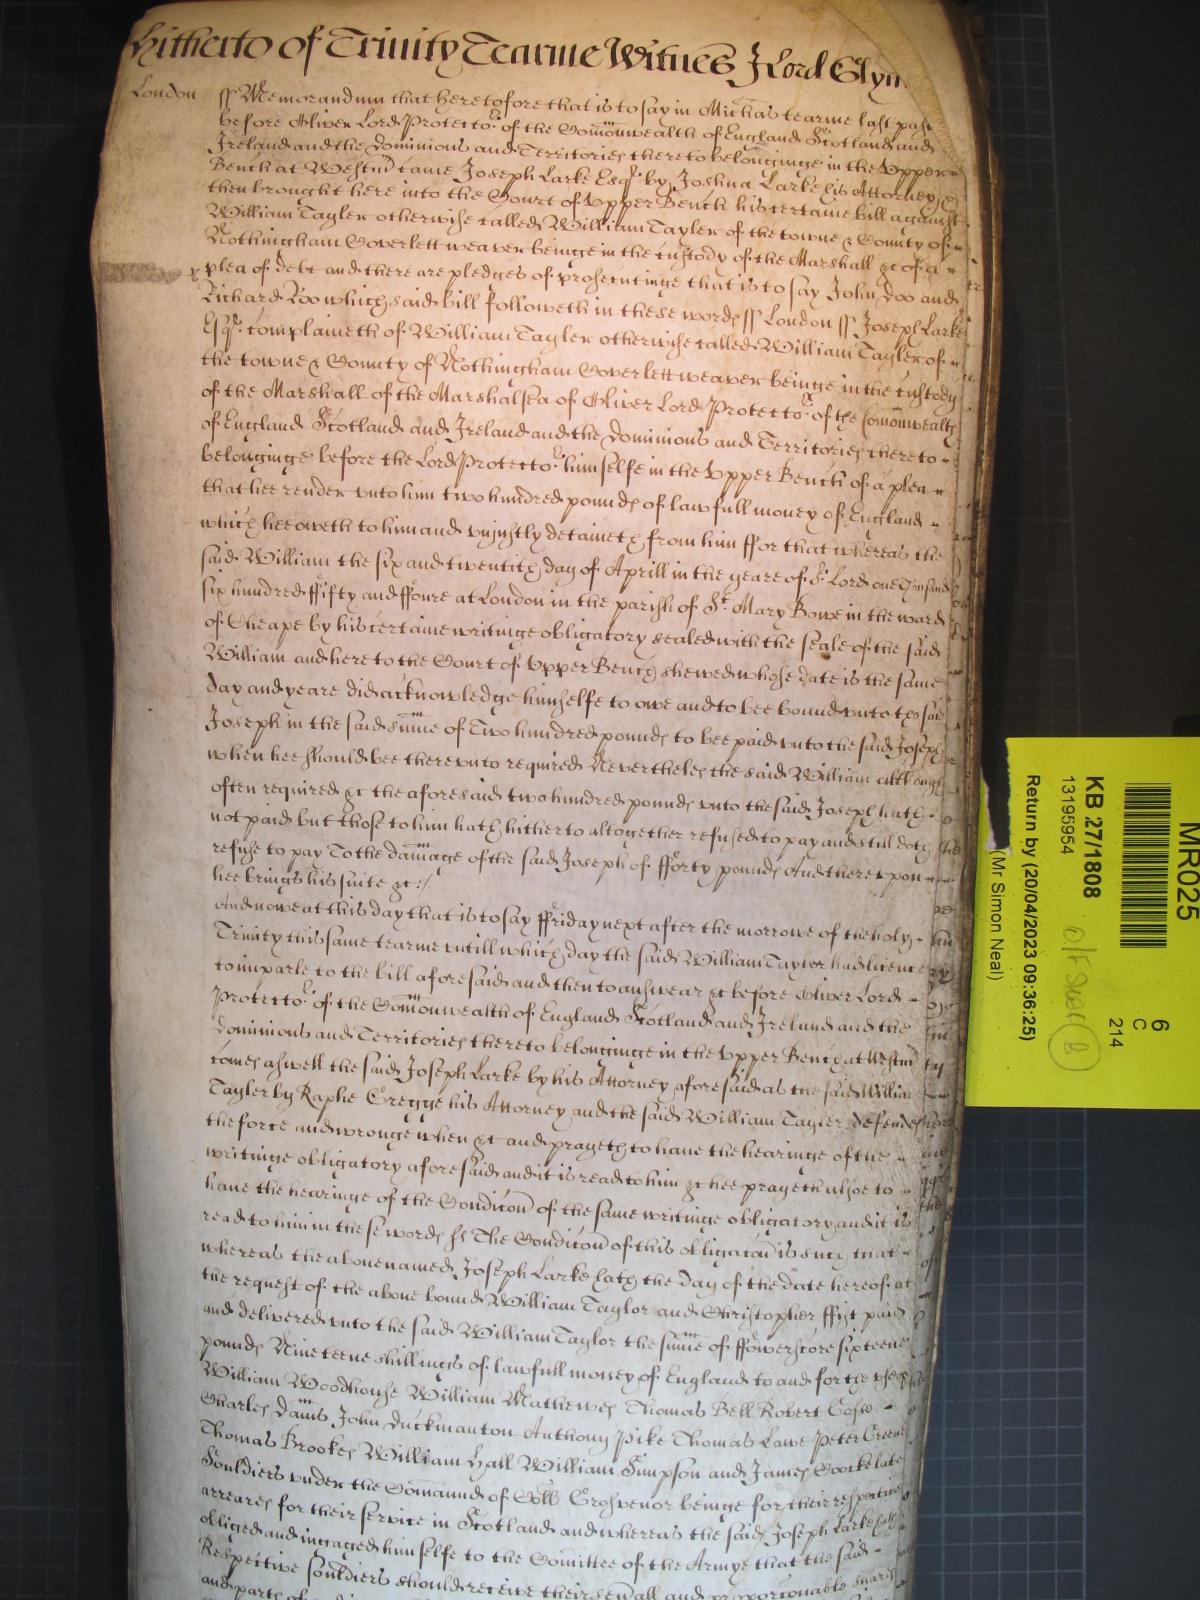 Hitherto of Trinity Tearme Witnes J Lord Glyn
London ss Memorandum that heretofore that is to say in Michas tearme last past
before Oliver Lord Protectoʳ of the Comonwealth of England Scotland and
Ireland and the Dominions and Territories thereto belonginge in the Vpper
Bench at Westmʳ came Joseph Larke Esqʳ by Joshua Larke his Attorney
then brought here into the Court of Vpper Bench his certaine bill against
William Tayler otherwise called William Tayler of the towne & County of
Nothingham Coverlett weaver beinge in the custody of the Marshall &c of a
plea of debt and there are pledges of prosecutinge that is to say John Doo and
Richard Roo which said bill followeth in these words ss London ss Joseph Larke
Esqʳ complaineth of William Tayler otherwise called William Tayler of
the towne & County of Nothingham Coverlett weaver beinge in the custody
of the Marshall of the Marshalsea of Oliver Lord Protectoʳ of the Comonwealth
of England Scotland and Ireland and the Dominions and Territories thereto
belonginge before the Lord Protectoʳ himselfe in the Vpper Bench of a plea
that hee render vnto him two hundred pounds of lawfull money of England
which hee oweth to him and vnjustly detaineth from him ffor that whereas the
said William the six and twentith day of Aprill in the yeare of oʳ Lord one Thousand
six hundred ffifty and ffoure at London in the parish of Sᵗ Mary Bowe in the ward
of Cheape by his certaine writinge obligatory sealed with the seale of the said
William and here to the Court of Vpper Bench shewed whose date is the same
day and yeare did acknowledge himselfe to owe and to bee bound vnto the said
Joseph in the said sume of Two hundred pounds to bee paid vnto the said Joseph
when hee should bee therevnto required Neverthelés the said William although
often required &c the aforesaid two hundred pounds vnto the said Joseph hath
not paid but those to him hath hitherto altogether refused to pay and still doth
refuse to pay To the damage of the said Joseph of fforty pounds And therevpon
hee brings his suite &c:/
And nowe at this day that is to say ffriday next after the morrowe of the holy
Trinity this same tearme vntill which day the said William Taylor had licence
to imparle to the bill aforesaid and then to answear &c before Oliver Lord
Protectoʳ of the Comonwealth of England Scotland and Ireland and the
Dominions and Territories thereto belonginge in the Vpper Bench at Westmʳ
comes aswell the said Joseph Larke by his Attorney aforesaid as the said William
Tayler by Raphe Gregge his Attorney and the said William Tayler defends
the force and wronge when &c and prayeth to haue the hearinge of the
writinge obligatory aforesaid and it is read to him &c hee prayeth alsoe to
haue the hearinge of the Condicōn of the same writinge obligatory and it is
read to him in these words ss The Condicōn of this obligacōn is such that
whereas the aboue named Joseph Larke hath the day of the date hereof at
the request of the aboue bound William Taylor and Christopher ffist paid
and delivered vnto the said William Taylor the sume of ffowerscore sixteene
pounds Nineteene shillings of lawfull money of England to and for the vse of
William Woodhouse William Mathewes Thomas Bell Robert
Charles Davis John Duckmanton Anthony Pike Thomas Lawe Peter Greene
Thomas Brookes William Hall William Simpson and James Coocke late
Souldiers vnder the Comaund of Coll Grosvenor beinge for their respective
arreares for their service in Scotland and whereas the said Joseph Larke hath
obliged and ingaged himselfe to the Comittee of the Armye that the said
Respective souldiers should receive their sevall and proporconable shares
and parts of
MR025
KB 27/1808
13195954
Return by (20/04/2023 09:36:25)
(Mr Simon Neal)
6
C
214